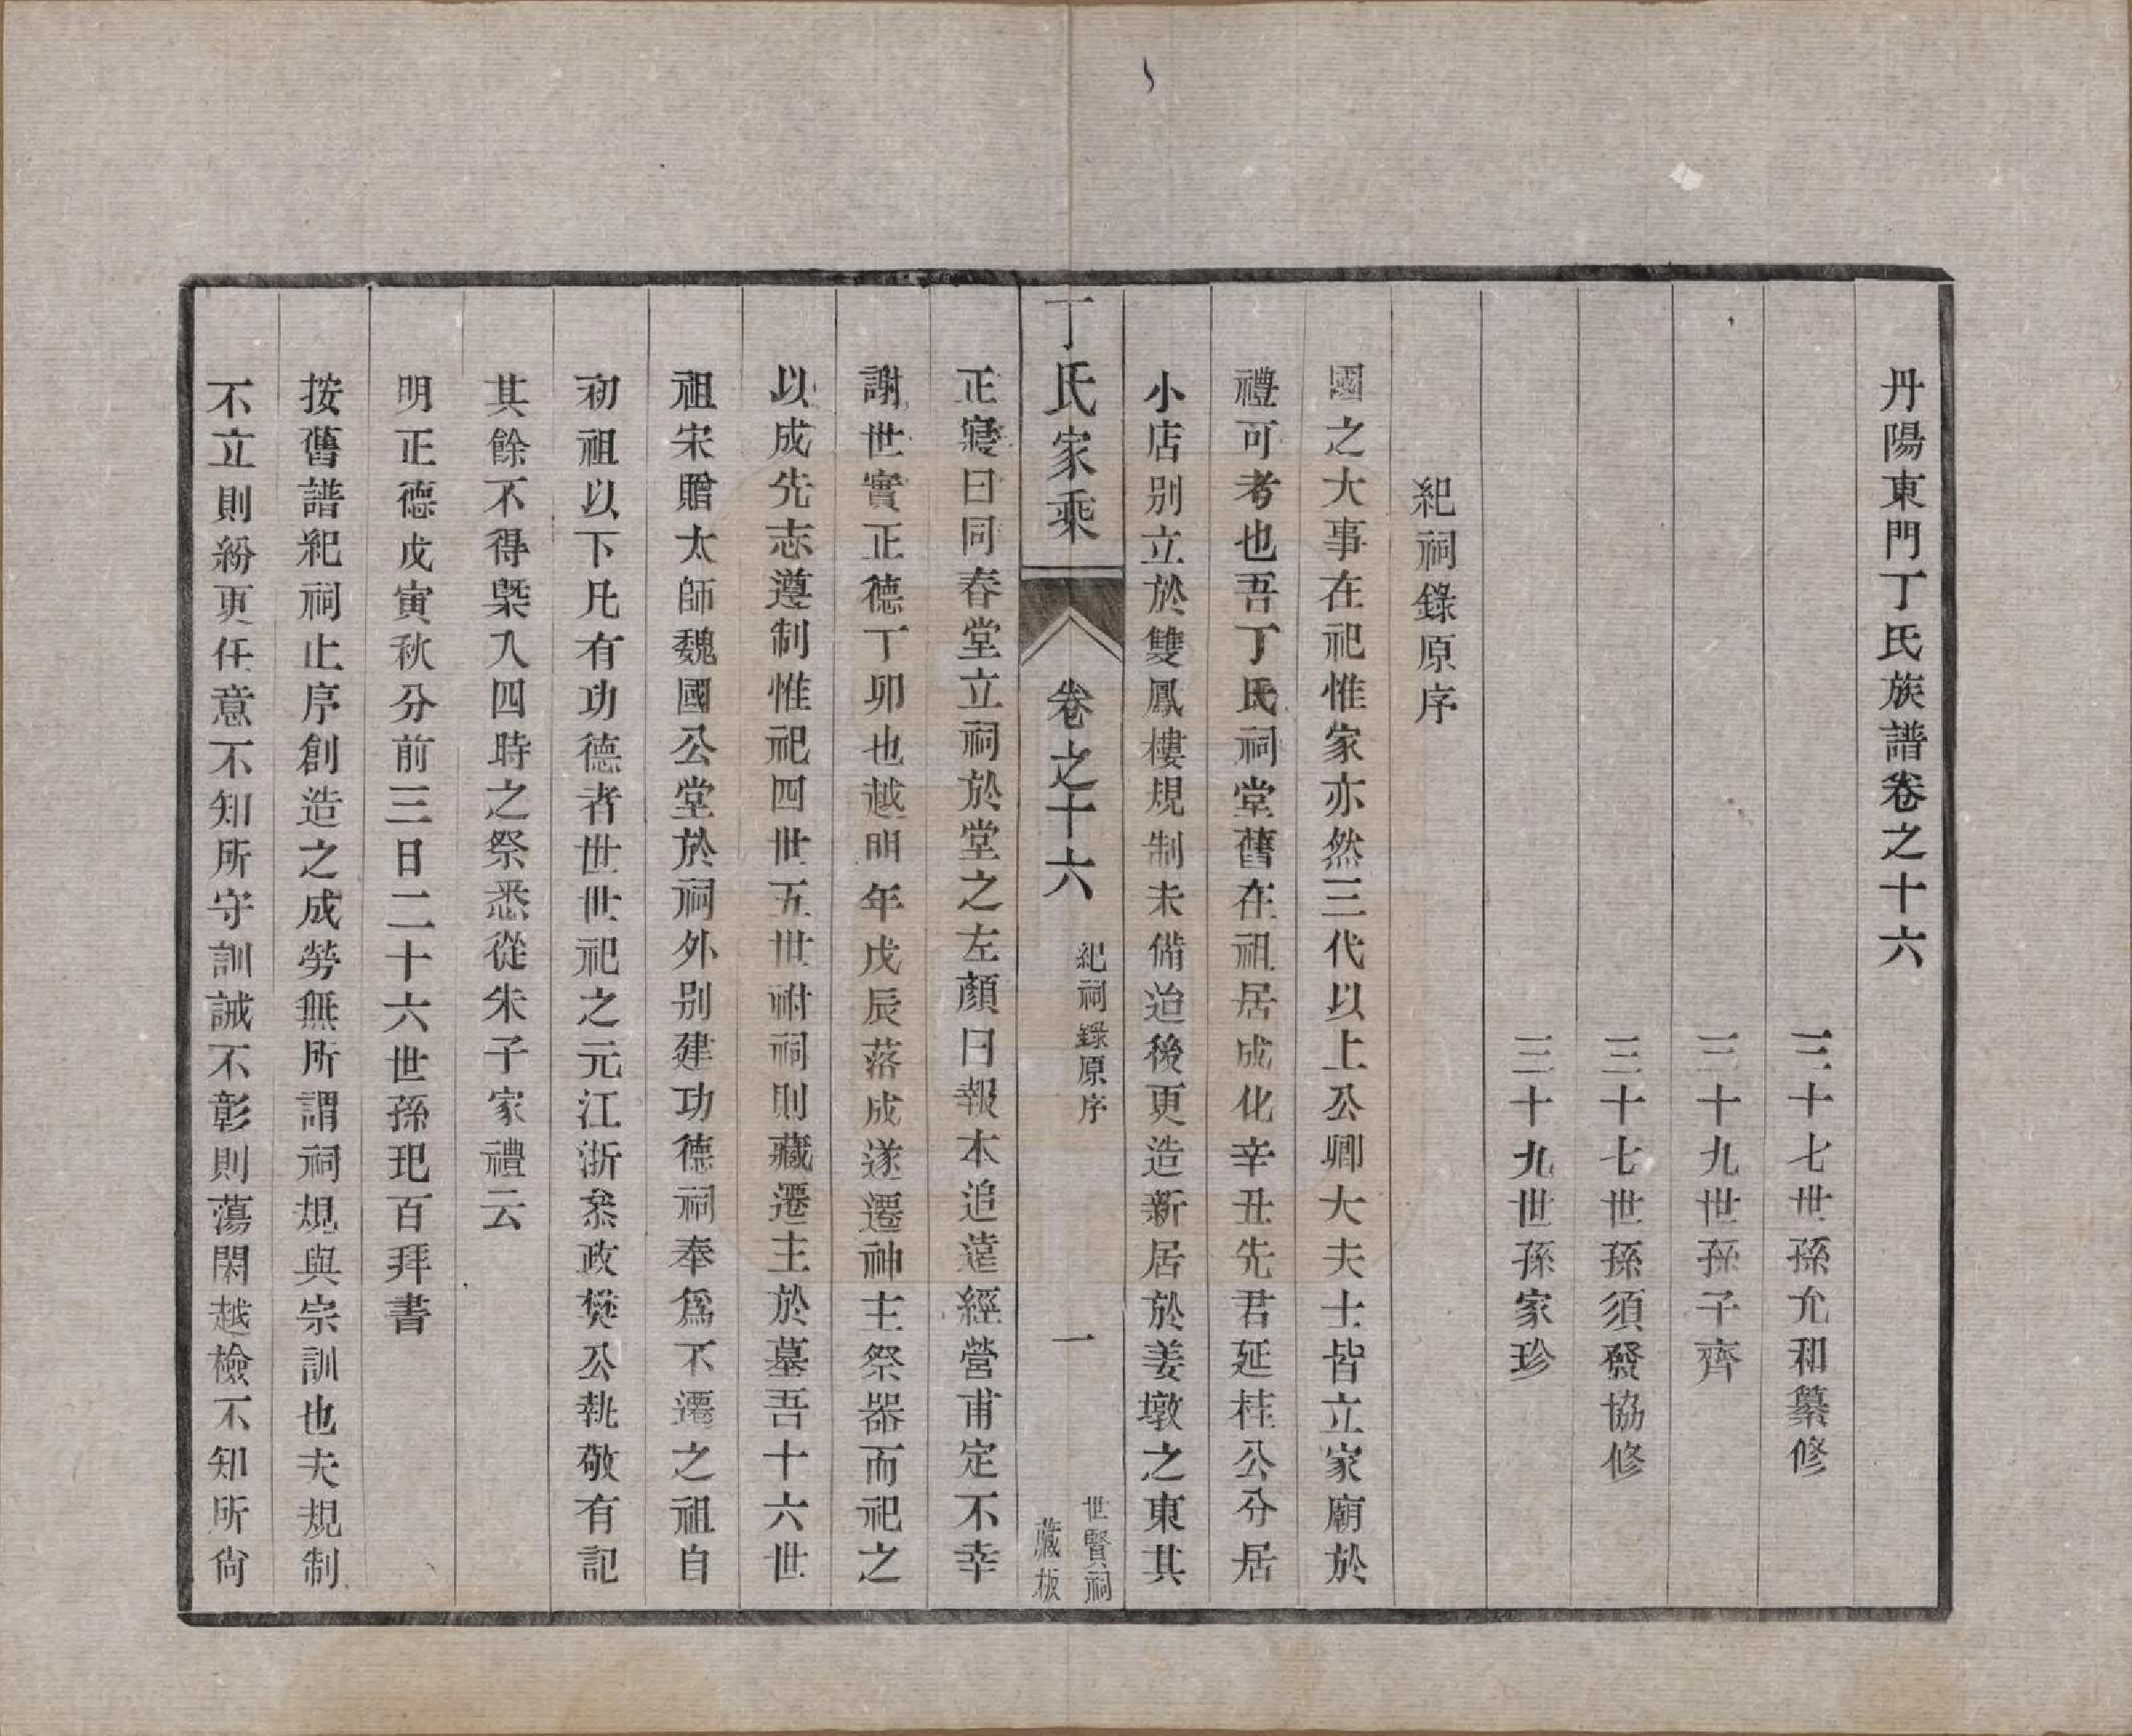 丹陽東門丁氏族譜卷之十六
三十七世孫允和纂修
三十九世孫子齊
三十七世孫須發協修
三十九世孫家珍
紀祠錄原序
國之大事在祀惟家亦然三代以上公卿大夫士皆立家廟於
禮可考也吾丁氏祠堂舊在祖居成化辛丑先君延桂公分居
小店別立於雙鳳樓規制未備迨後更造新居於姜墩之東其
丁氏家乘
卷之十六
紀祠錄原序
一
世賢祠
藏板
正寢曰同春堂立祠於堂之左顏曰報本追遠經營甫定不幸
謝世實正德丁卯也越明年戊辰落成遂遷神主祭器而祀之
以成先志遵制惟祀四世五世祔祠則藏遷主於墓吾十六世
祖宋贈太師魏國公堂於祠外別建功德祠奉為不遷之祖自
初祖以下凡有功德者世世祀之元江浙叅政樊公執敬有記
其餘不得槩入四時之祭悉從朱子家禮云
明正德戊寅秋分前三日二十六世孫玘百拜書
按舊譜紀祠止序創造之成勞無所謂祠規與宗訓也夫規制
不立則紛更任意不知所守訓誡不彰則蕩閑越檢不知所尙